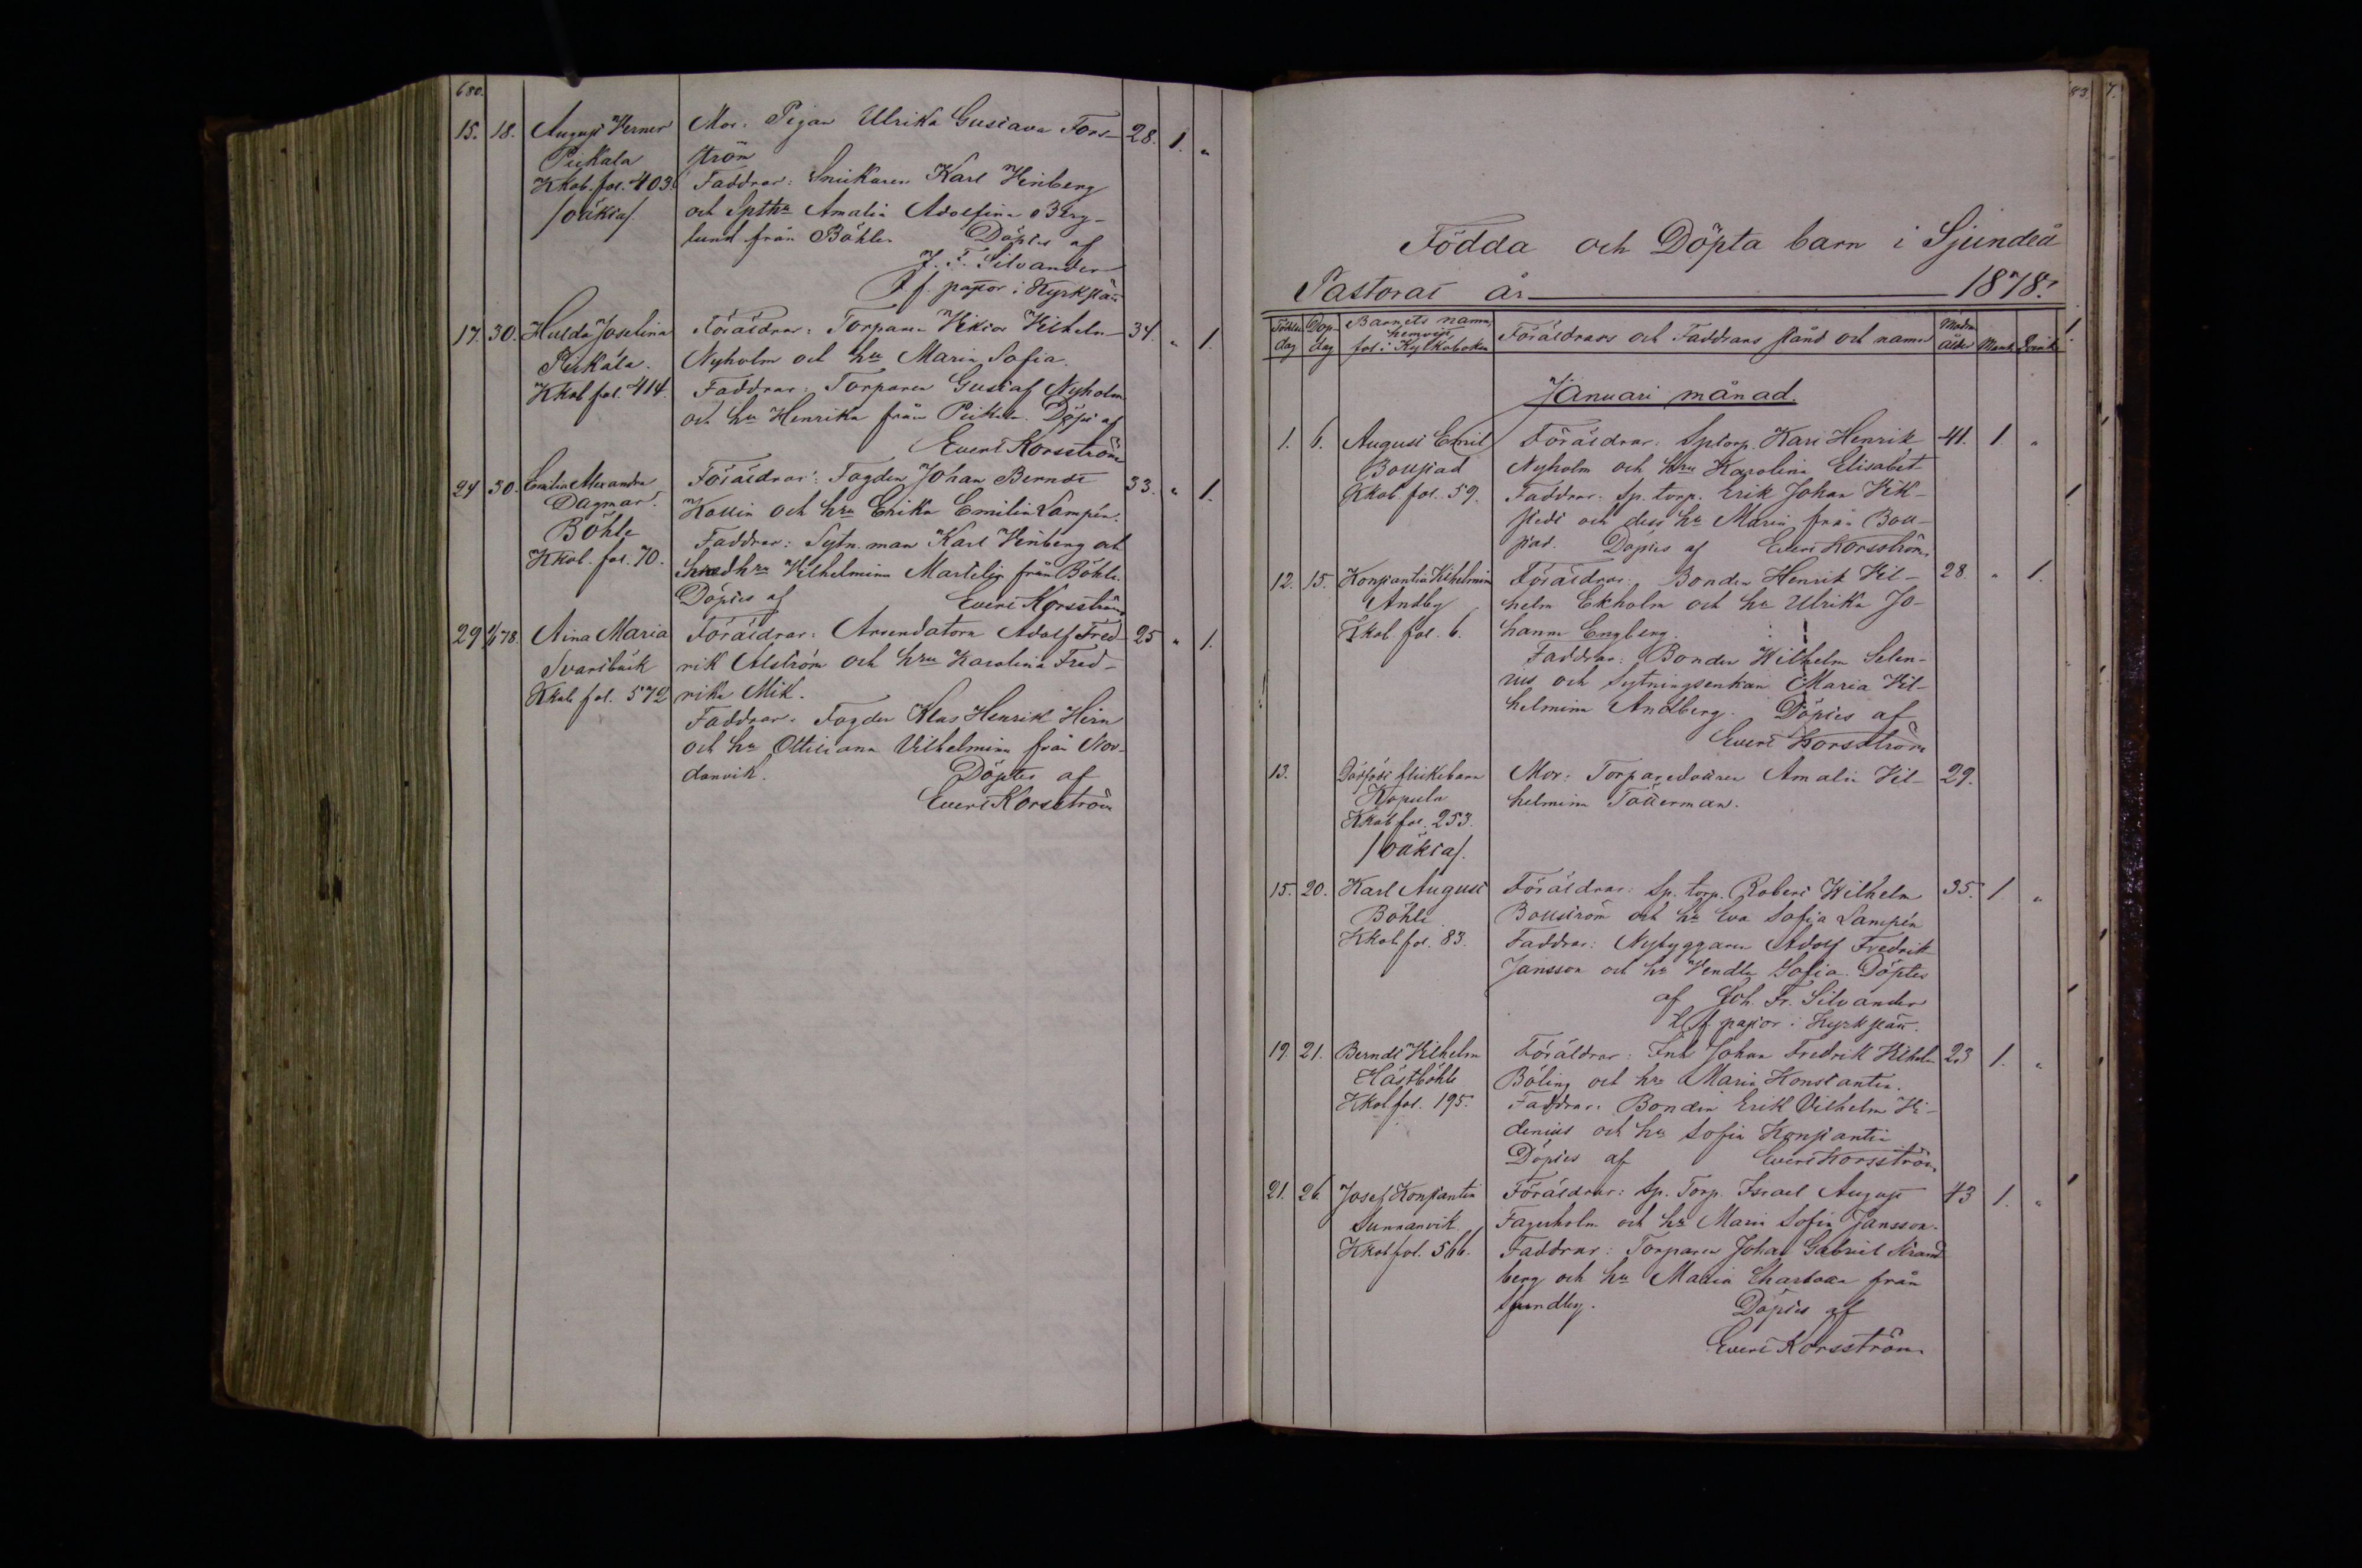 680.
15. 18. August Verner Mor: Pigan Ulrika Gustava Fors- 28. 1. "
Pickala ström
Kkob. fol. 403. Faddrar: Snickaren Karl Vinberg
/oäkta/. och Spthr Amalia Adolfina Berg-
lund från Böhle. Döptes af
J. F. Silvander
t. f. pastor i Kyrkslätt
17. 30. Hulda Joselina Föräldrar: Torparen Viktor Vilhelm 34. " 1.
Pickala. Nyholm och hu Maria Sofia.
Kkob fol. 414. Faddrar: Torparen Gustaf Nyholm
och hu Henrika från Pickala. Döpt af
Evert Korsström
24 30. Emilia Alexandra Föräldrar: Fogden Johan Berndt 33. " 1.
Dagmar. Kollin och hru Erika Emilia Lampén.
Böhle Faddrar: Sytn. man Karl Vinberg och
Kkob. fol. 70. hru Vilhelmina Martelin från Böhle.
Döptes af Evert Korsström
29 1/1 78. Aina Maria Föräldrar: Arrendatorn Adolf Fred- 25 " 1.
Svartbäck rik Alström och hru Karolina Fred-
Kkob fol. 572 rika Mik.
Faddrar: Fogden Klas Henrik Hirn
och hu Ottiliana Vilhelmina från Nor-
danvik. Döptes af
Evert Korsström
Födda och Döpta barn i Sjundeå
Pastorat år 1878.
Födelsedag Dopdag Barnets namn, hemvist, fol. i Kyrkoboken Föräldrars och Faddrars stånd och namn Modrens ålder Mank. Qvink.
Januari månad.
1. 6. August Emil Föräldrar: Sptorp. Karl Henrik 41. 1. "
Bollstad Nyholm och hru Karolina Elisabet
Kkob fol. 59. Faddrar: Sp. torp. Erik Johan Vik-
stedt och dess hu Maria från Boll-
stad. Döptes af Evert Korsström
12. 15. Konstantia Vilhelmina Föräldrar: Bonden Henrik Vil- 28. " 1.
Andby helm Ekholm och hu Ulrika Jo-
Kkob. fol. 6. hanna Engberg.
Faddrar: Bonden Wilhelm Selen-
ius och Sytningsenkan Maria Vil-
helmina Andberg. Döptes af
Evert Korsström
13. Dödfödt flickebarn Mor: Torparedottren Amalia Vil- 29.
Kopula helmina Tötterman.
Kkob fol. 253.
/oäkta/.
15. 20. Karl August Föräldrar: Sp. torp. Robert Wilhelm 35. 1. "
Böhle Bollström och hu Eva Sofia Lampén
Kkob fol. 83. Faddrar: Nybyggaren Adolf Fredrik
Jansson och hu Vendla Sofia. Döptes
af Joh. Fr. Silvander
t. f. pastor i Kyrkslätt.
19. 21. Berndt Vilhelm Föräldrar: Inh Johan Fredrik Vilhelm 23 1. "
Hästböhle Böling och hru Maria Konstantia.
Kkob fol. 195. Faddrar: Bonden Erik Vilhelm Vi-
denius och hu Sofia Konstantia
Döptes af Evert Korsström
21. 26. Josef Konstantin Föräldrar: Sp. Torp. Israel August 43 1. "
Sunnanvik Fagerholm och hu Maria Sofia Jansson.
Kkob fol. 566. Faddrar: Torparen Johan Gabriel Strand-
berg och hu Maria Charlotta från
Sundby. Döptes af
Evert Korsström